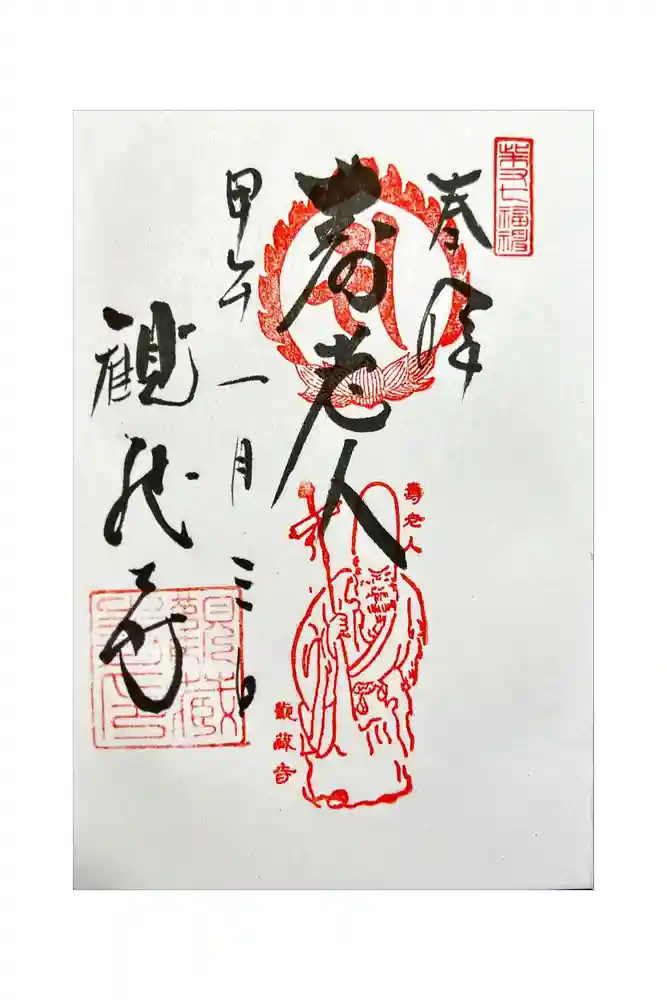 柴又七福神
奉拝
寿老人
壽老人
觀蔵寺
甲午一月三日
観蔵寺